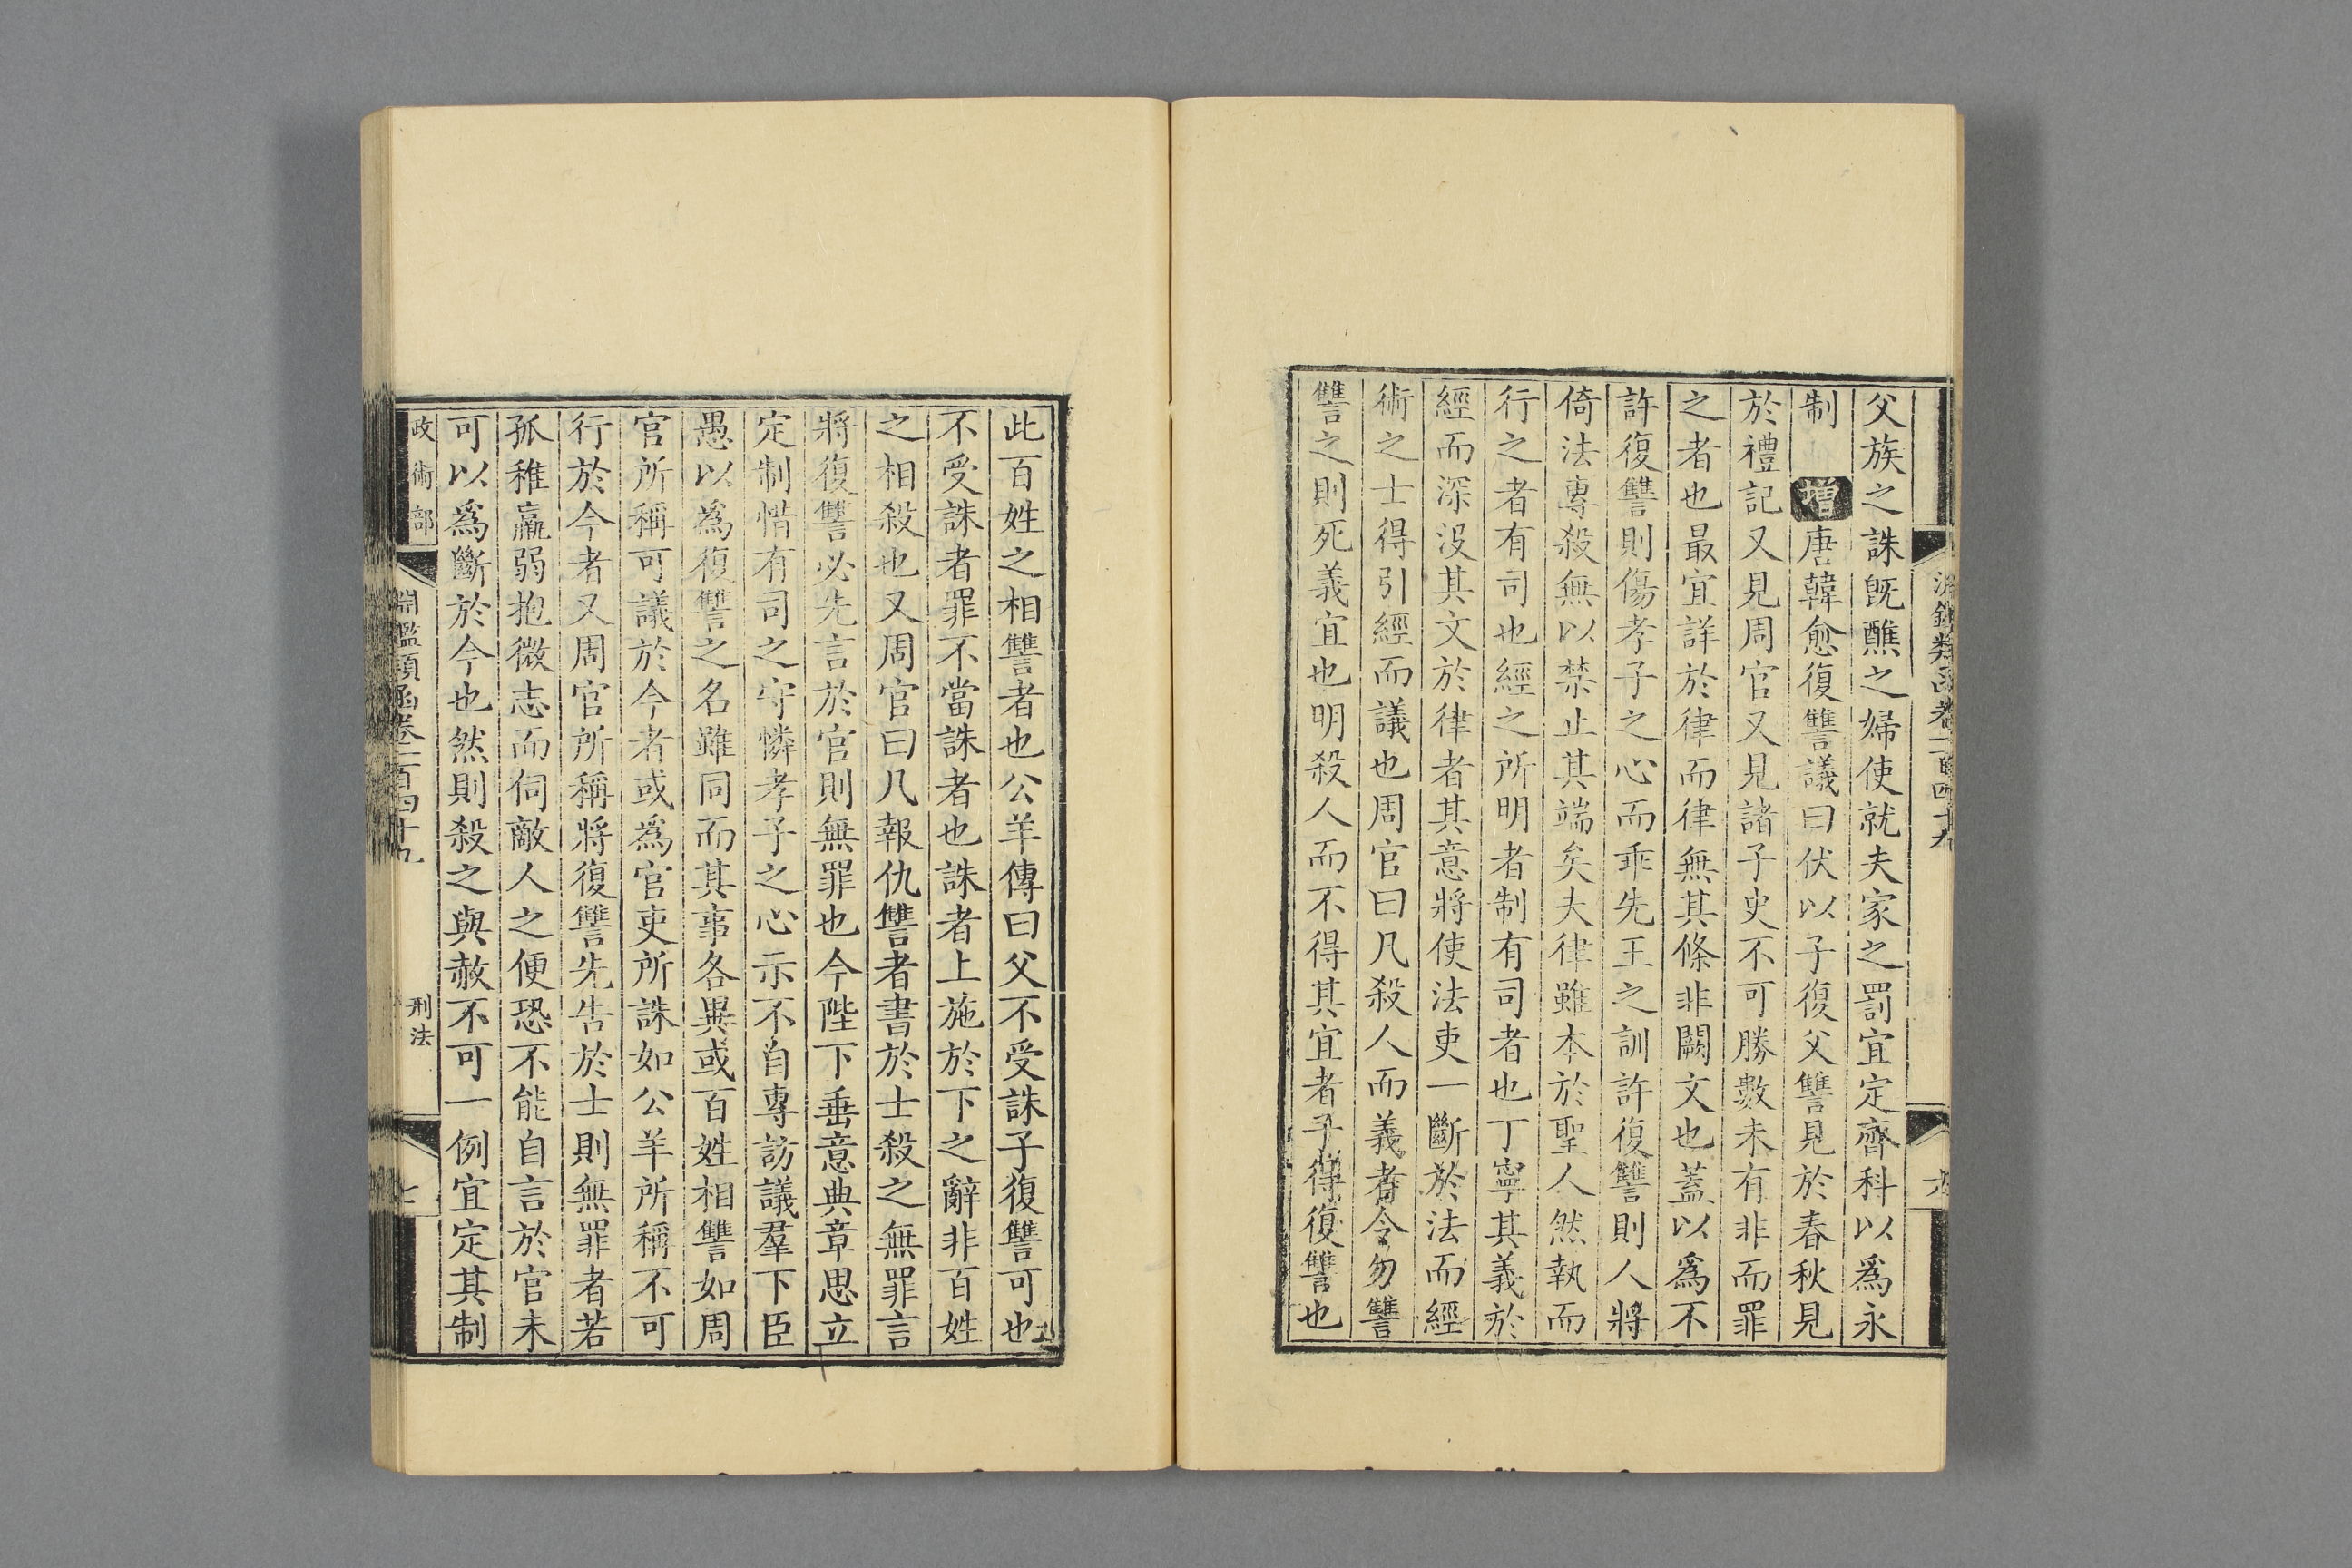 父族之誅旣醮之婦使就夫家之罰宜定齊科以爲永
制 增唐韓愈復讐議曰伏以子復父讐見於春秋見
於禮記又見周官又見諸子史不可勝數未有非而罪
之者也最宜詳於律而律無其條非闕文也蓋以爲不
許復讐則傷孝子之心而乖先王之訓許復讐則人將
倚法專殺無以禁止其端矣夫律雖本於聖人然執而
行之者有司也經之所明者制有司者也丁寧其義於
經而深没其文於律者其意將使法吏一斷於法而經
術之士得引經而議也周官曰凡殺人而義者令勿讐
讐之則死義宜也明殺人而不得其宜者子得復讐也
此百姓之相讐者也公羊傳曰父不受誅子復讐可也
不受誅者罪不當誅者也誅者上施於下之辭非百姓
之相殺也又周官曰凡報仇讐者書於士殺之無罪言
將復讐必先言於官則無罪也今陛下垂意典章思立
定制惜有司之守憐孝子之心示不自專訪議羣下臣
愚以爲復讐之名雖同而其事各異或百姓相讐如周
官所稱可議於今者或爲官吏所誅如公羊所稱不可
行於今者又周官所稱將復讐先告於士則無罪者若
孤稚羸弱抱微志而伺敵人之便恐不能自言於官未
可以爲斷於今也然則殺之與赦不可一例宜定其制
政術部 淵鑑類函卷二百四十九 刑法 七